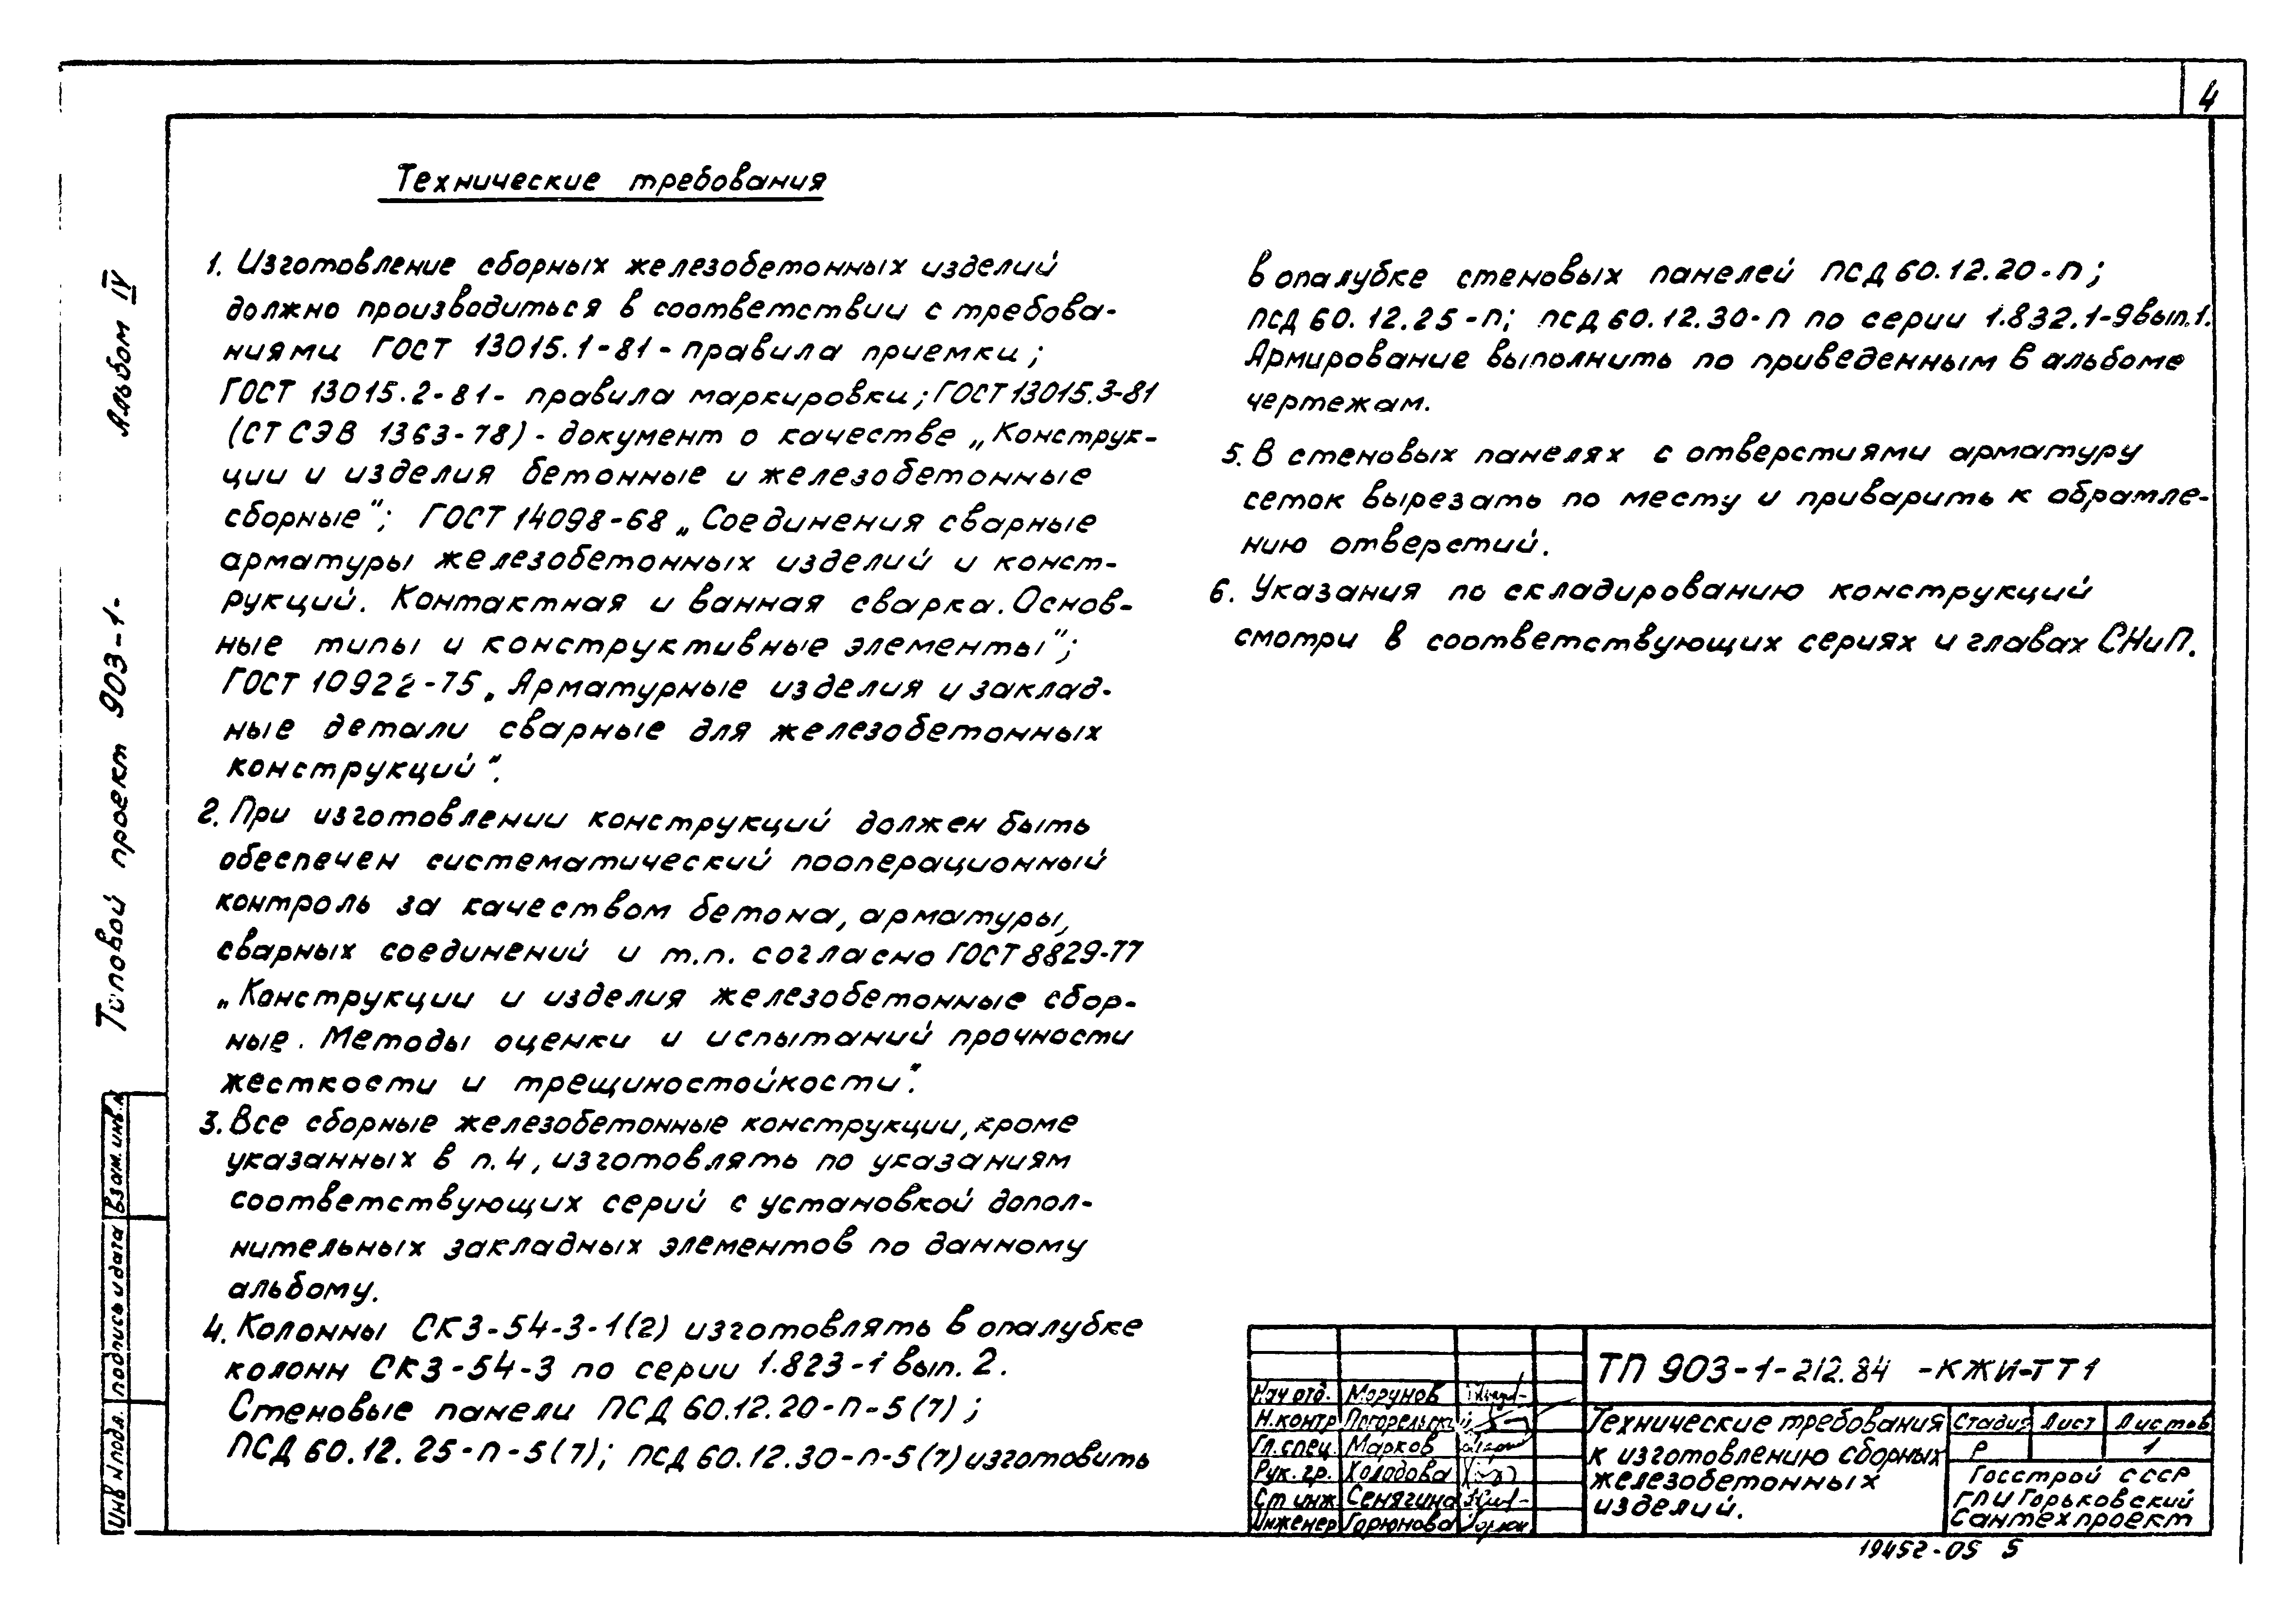 4
Технические требования
1. Изготовление сборных железобетонных изделий
должно производиться в соответствии с требова-
ниями ГОСТ 13015.1-81 - правила приемки;
ГОСТ 13015.2-81 - правила маркировки; ГОСТ 13015.3-81
(СТ СЭВ 1363-78) - документ о качестве „Конструк-
ции и изделия бетонные и железобетонные
сборные"; ГОСТ 14098-68 „Соединения сварные
арматуры железобетонных изделий и конст-
рукций. Контактная и ванная сварка. Основ-
ные типы и конструктивные элементы";
ГОСТ 10922-75 „Арматурные изделия и заклад-
ные детали сварные для железобетонных
конструкций".
2. При изготовлении конструкций должен быть
обеспечен систематический пооперационный
контроль за качеством бетона, арматуры,
сварных соединений и т.п. согласно ГОСТ 8829-77
„Конструкции и изделия железобетонные сбор-
ные. Методы оценки и испытаний прочности
жесткости и трещиностойкости".
3. Все сборные железобетонные конструкции, кроме
указанных в п.4, изготовлять по указаниям
соответствующих серий с установкой допол-
нительных закладных элементов по данному
альбому.
4. Колонны СК3-54-3-1(2) изготовлять в опалубке
колонн СК3-54-3 по серии 1.823-1 вып. 2.
Стеновые панели ПСД 60.12.20-П-5(7);
ПСД 60.12.25-П-5(7); ПСД 60.12.30-П-5(7) изготовить
в опалубке стеновых панелей ПСД 60.12.20-П;
ПСД 60.12.25-П; ПСД 60.12.30-П по серии 1.832.1-9 вып.1.
Армирование выполнить по приведенным в альбоме
чертежам.
5. В стеновых панелях с отверстиями арматуру
сеток вырезать по месту и приварить к обрамле-
нию отверстий.
6. Указания по складированию конструкций
смотри в соответствующих сериях и главах СНиП.
Типовой проект 903-1- Альбом IV
Инв N подл. Подпись и дата Взам. инв. N
ТП 903-1-212.84 -КЖИ-ТТ1
Нач отд. Морунов
Н.контр Погорельский
Гл.спец. Марков
Рук. гр. Холодова
Ст инж. Сенягина
Инженер Горюнова
Технические требования
к изготовлению сборных
железобетонных
изделий.
Стадия Лист Листов
Р 1
Госстрой СССР
ГПИ Горьковский
Сантехпроект
19452-05 5